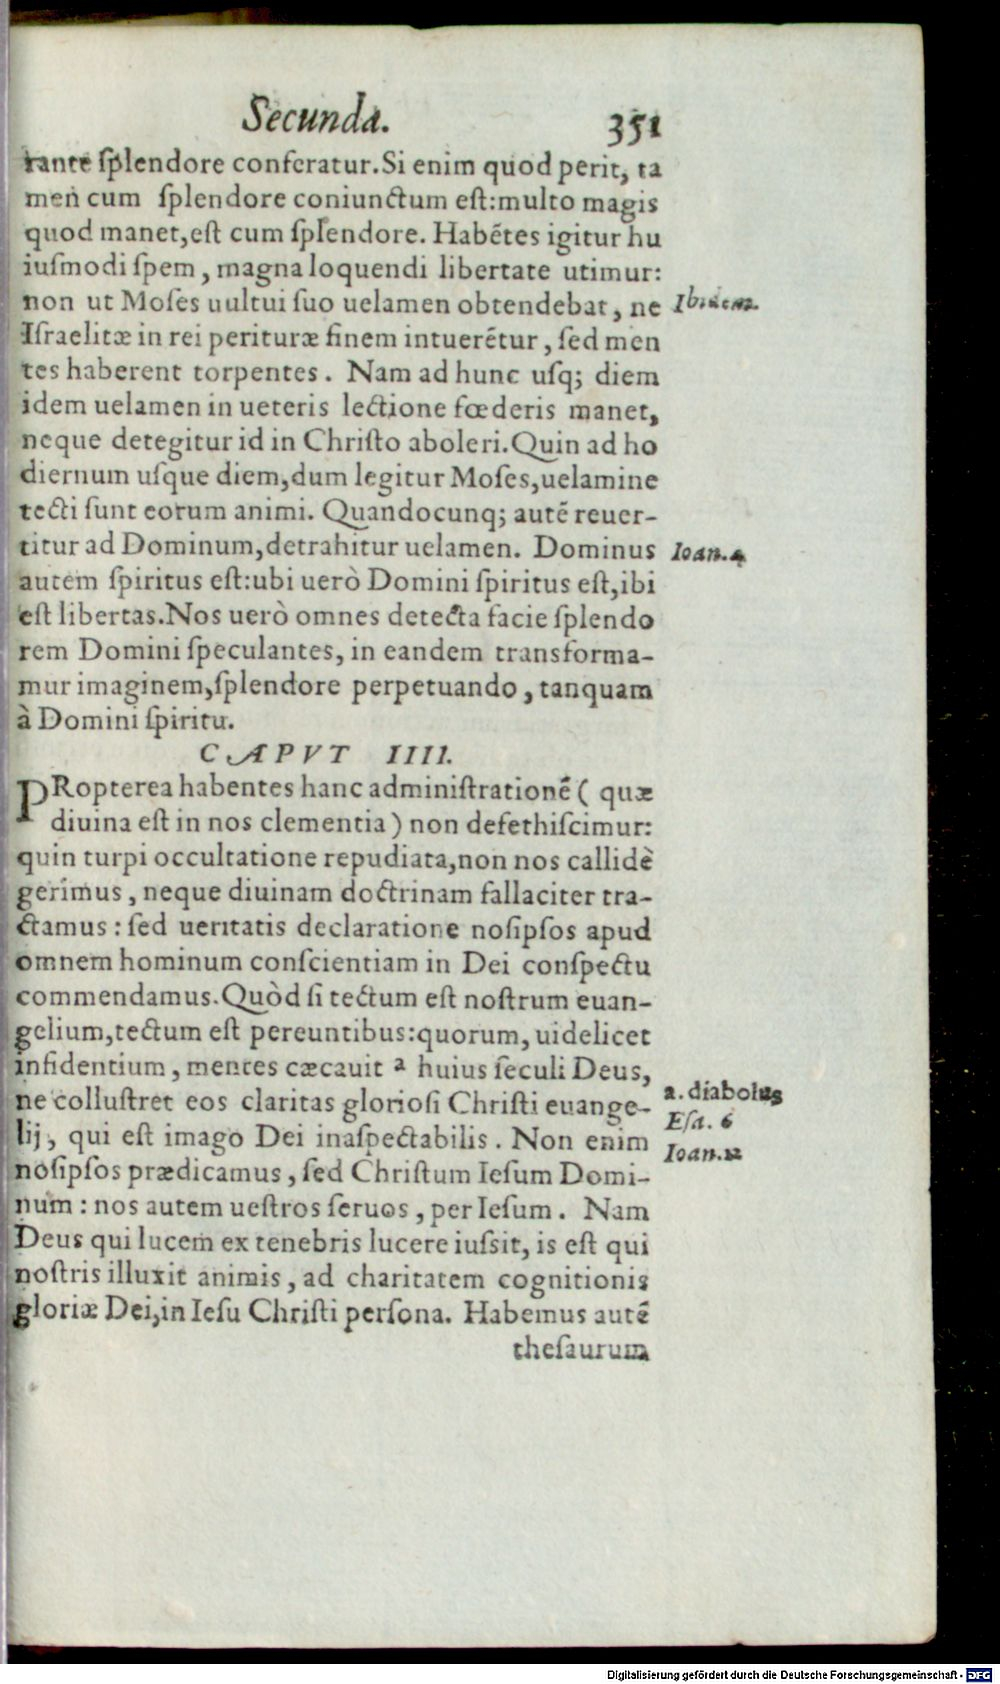 Secunda. 351
tante ſplendore conferatur. Si enim quod perit, ta
men cum ſplendore coniunctum eſt: multo magis
quod manet, eſt cum ſplendore. Habētes igitur hu
iuſmodi ſpem, magna loquendi libertate utimur:
non ut Moſes uultui ſuo uelamen obtendebat, ne
Ibidem.
Iſraelitæ in rei perituræ finem intuerētur, ſed men
tes haberent torpentes. Nam ad hunc uſq; diem
idem uelamen in ueteris lectione fœderis manet,
neque detegitur id in Chriſto aboleri. Quin ad ho
diernum uſque diem, dum legitur Moſes, uelamine
tecti ſunt eorum animi. Quandocunq; autē reuer-
titur ad Dominum, detrahitur uelamen. Dominus
Ioan. 4
autem ſpiritus eſt: ubi uerò Domini ſpiritus eſt, ibi
eſt libertas. Nos uerò omnes detecta facie ſplendo
rem Domini ſpeculantes, in eandem transforma-
mur imaginem, ſplendore perpetuando, tanquam
à Domini ſpiritu.
CAPVT IIII.
PRopterea habentes hanc adminiſtrationē ( quæ
diuina eſt in nos clementia ) non defethiſcimur:
quin turpi occultatione repudiata, non nos callidè
gerimus, neque diuinam doctrinam fallaciter tra-
ctamus: ſed ueritatis declaratione noſipſos apud
omnem hominum conſcientiam in Dei conſpectu
commendamus. Quòd ſi tectum eſt noſtrum euan-
gelium, tectum eſt pereuntibus: quorum, uidelicet
infidentium, mentes cæcauit ª huius ſeculi Deus,
a. diabolus
ne colluſtret eos claritas glorioſi Chriſti euange-
Eſa. 6
lij, qui eſt imago Dei inaſpectabilis. Non enim
Ioan. 12
noſipſos prædicamus, ſed Chriſtum Ieſum Domi-
num: nos autem ueſtros ſeruos, per Ieſum. Nam
Deus qui lucem ex tenebris lucere iuſsit, is eſt qui
noſtris illuxit animis, ad charitatem cognitionis
gloriæ Dei, in Ieſu Chriſti perſona. Habemus autē
theſaurum
Digitalisierung gefördert durch die Deutsche Forschungsgemeinschaft - DFG